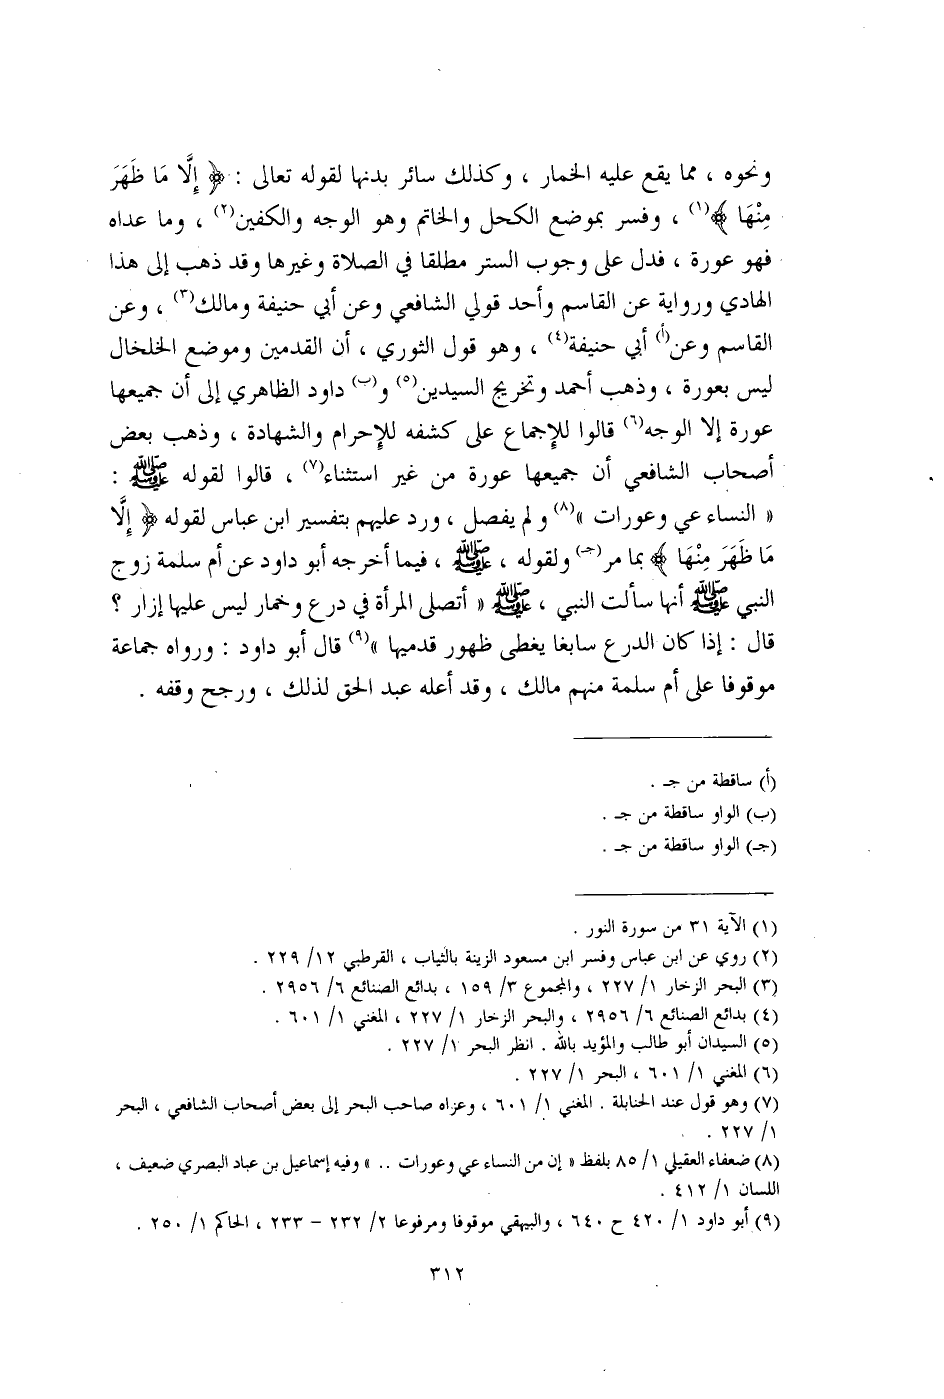 ونحوه ، مما يقع عليه الخمار ، وكذلك سائر بدنها لقوله تعالى : ﴿ إِلَّا مَا ظَهَرَ
مِنْهَا ﴾(١) ، وفسر بموضع الكحل والخاتم وهو الوجه والكفين(٢) ، وما عداه
فهو عورة ، فدل على وجوب الستر مطلقا في الصلاة وغيرها وقد ذهب إلى هذا
الهادي ورواية عن القاسم وأحد قولي الشافعي وعن أبي حنيفة ومالك(٣) ، وعن
القاسم وعن(أ) أبي حنيفة(٤) ، وهو قول الثوري ، أن القدمين وموضع الخلخال
ليس بعورة ، وذهب أحمد وتخريج السيدين(٥) و(ب) داود الظاهري إلى أن جميعها
عورة إلا الوجه(٦) قالوا للإجماع على كشفه للإحرام والشهادة ، وذهب بعض
أصحاب الشافعي أن جميعها عورة من غير استثناء(٧) ، قالوا لقوله ﷺ :
« النساء عي وعورات »(٨) و لم يفصل ، ورد عليهم بتفسير ابن عباس لقوله ﴿ إِلَّا
مَا ظَهَرَ مِنْهَا ﴾ بما مر(جـ) ولقوله ، ﷺ ، فيما أخرجه أبو داود عن أم سلمة زوج
النبي ﷺ أنها سألت النبي ، ﷺ « أتصلى المرأة في درع وخمار ليس عليها إزار ؟
قال : إذا كان الدرع سابغا يغطى ظهور قدميها »(٩) قال أبو داود : ورواه جماعة
موقوفا على أم سلمة منهم مالك ، وقد أعله عبد الحق لذلك ، ورجح وقفه .
(أ) ساقطة من جـ .
(ب) الواو ساقطة من جـ .
(جـ) الواو ساقطة من جـ .
(١) الآية ٣١ من سورة النور .
(٢) روي عن ابن عباس وفسر ابن مسعود الزينة بالثياب ، القرطبي ١٢/ ٢٢٩ .
(٣) البحر الزخار ١/ ٢٢٧ ، والمجموع ٣/ ١٥٩ ، بدائع الصنائع ٦/ ٢٩٥٦ .
(٤) بدائع الصنائع ٦/ ٢٩٥٦ ، والبحر الزخار ١/ ٢٢٧ ، المغني ١/ ٦٠١ .
(٥) السيدان أبو طالب والمؤيد بالله . انظر البحر ١/ ٢٢٧ .
(٦) المغني ١/ ٦٠١ ، البحر ١/ ٢٢٧ .
(٧) وهو قول عند الحنابلة . المغني ١/ ٦٠١ ، وعزاه صاحب البحر إلى بعض أصحاب الشافعي ، البحر
١/ ٢٢٧ .
(٨) ضعفاء العقيلي ١/ ٨٥ بلفظ « إن من النساء عي وعورات .. » وفيه إسماعيل بن عباد البصري ضعيف ،
اللسان ١/ ٤١٢ .
(٩) أبو داود ١/ ٤٢٠ ح ٦٤٠ ، والبيهقي موقوفا ومرفوعا ٢/ ٢٣٢ – ٢٣٣ ، الحاكم ١/ ٢٥٠ .
٣١٢